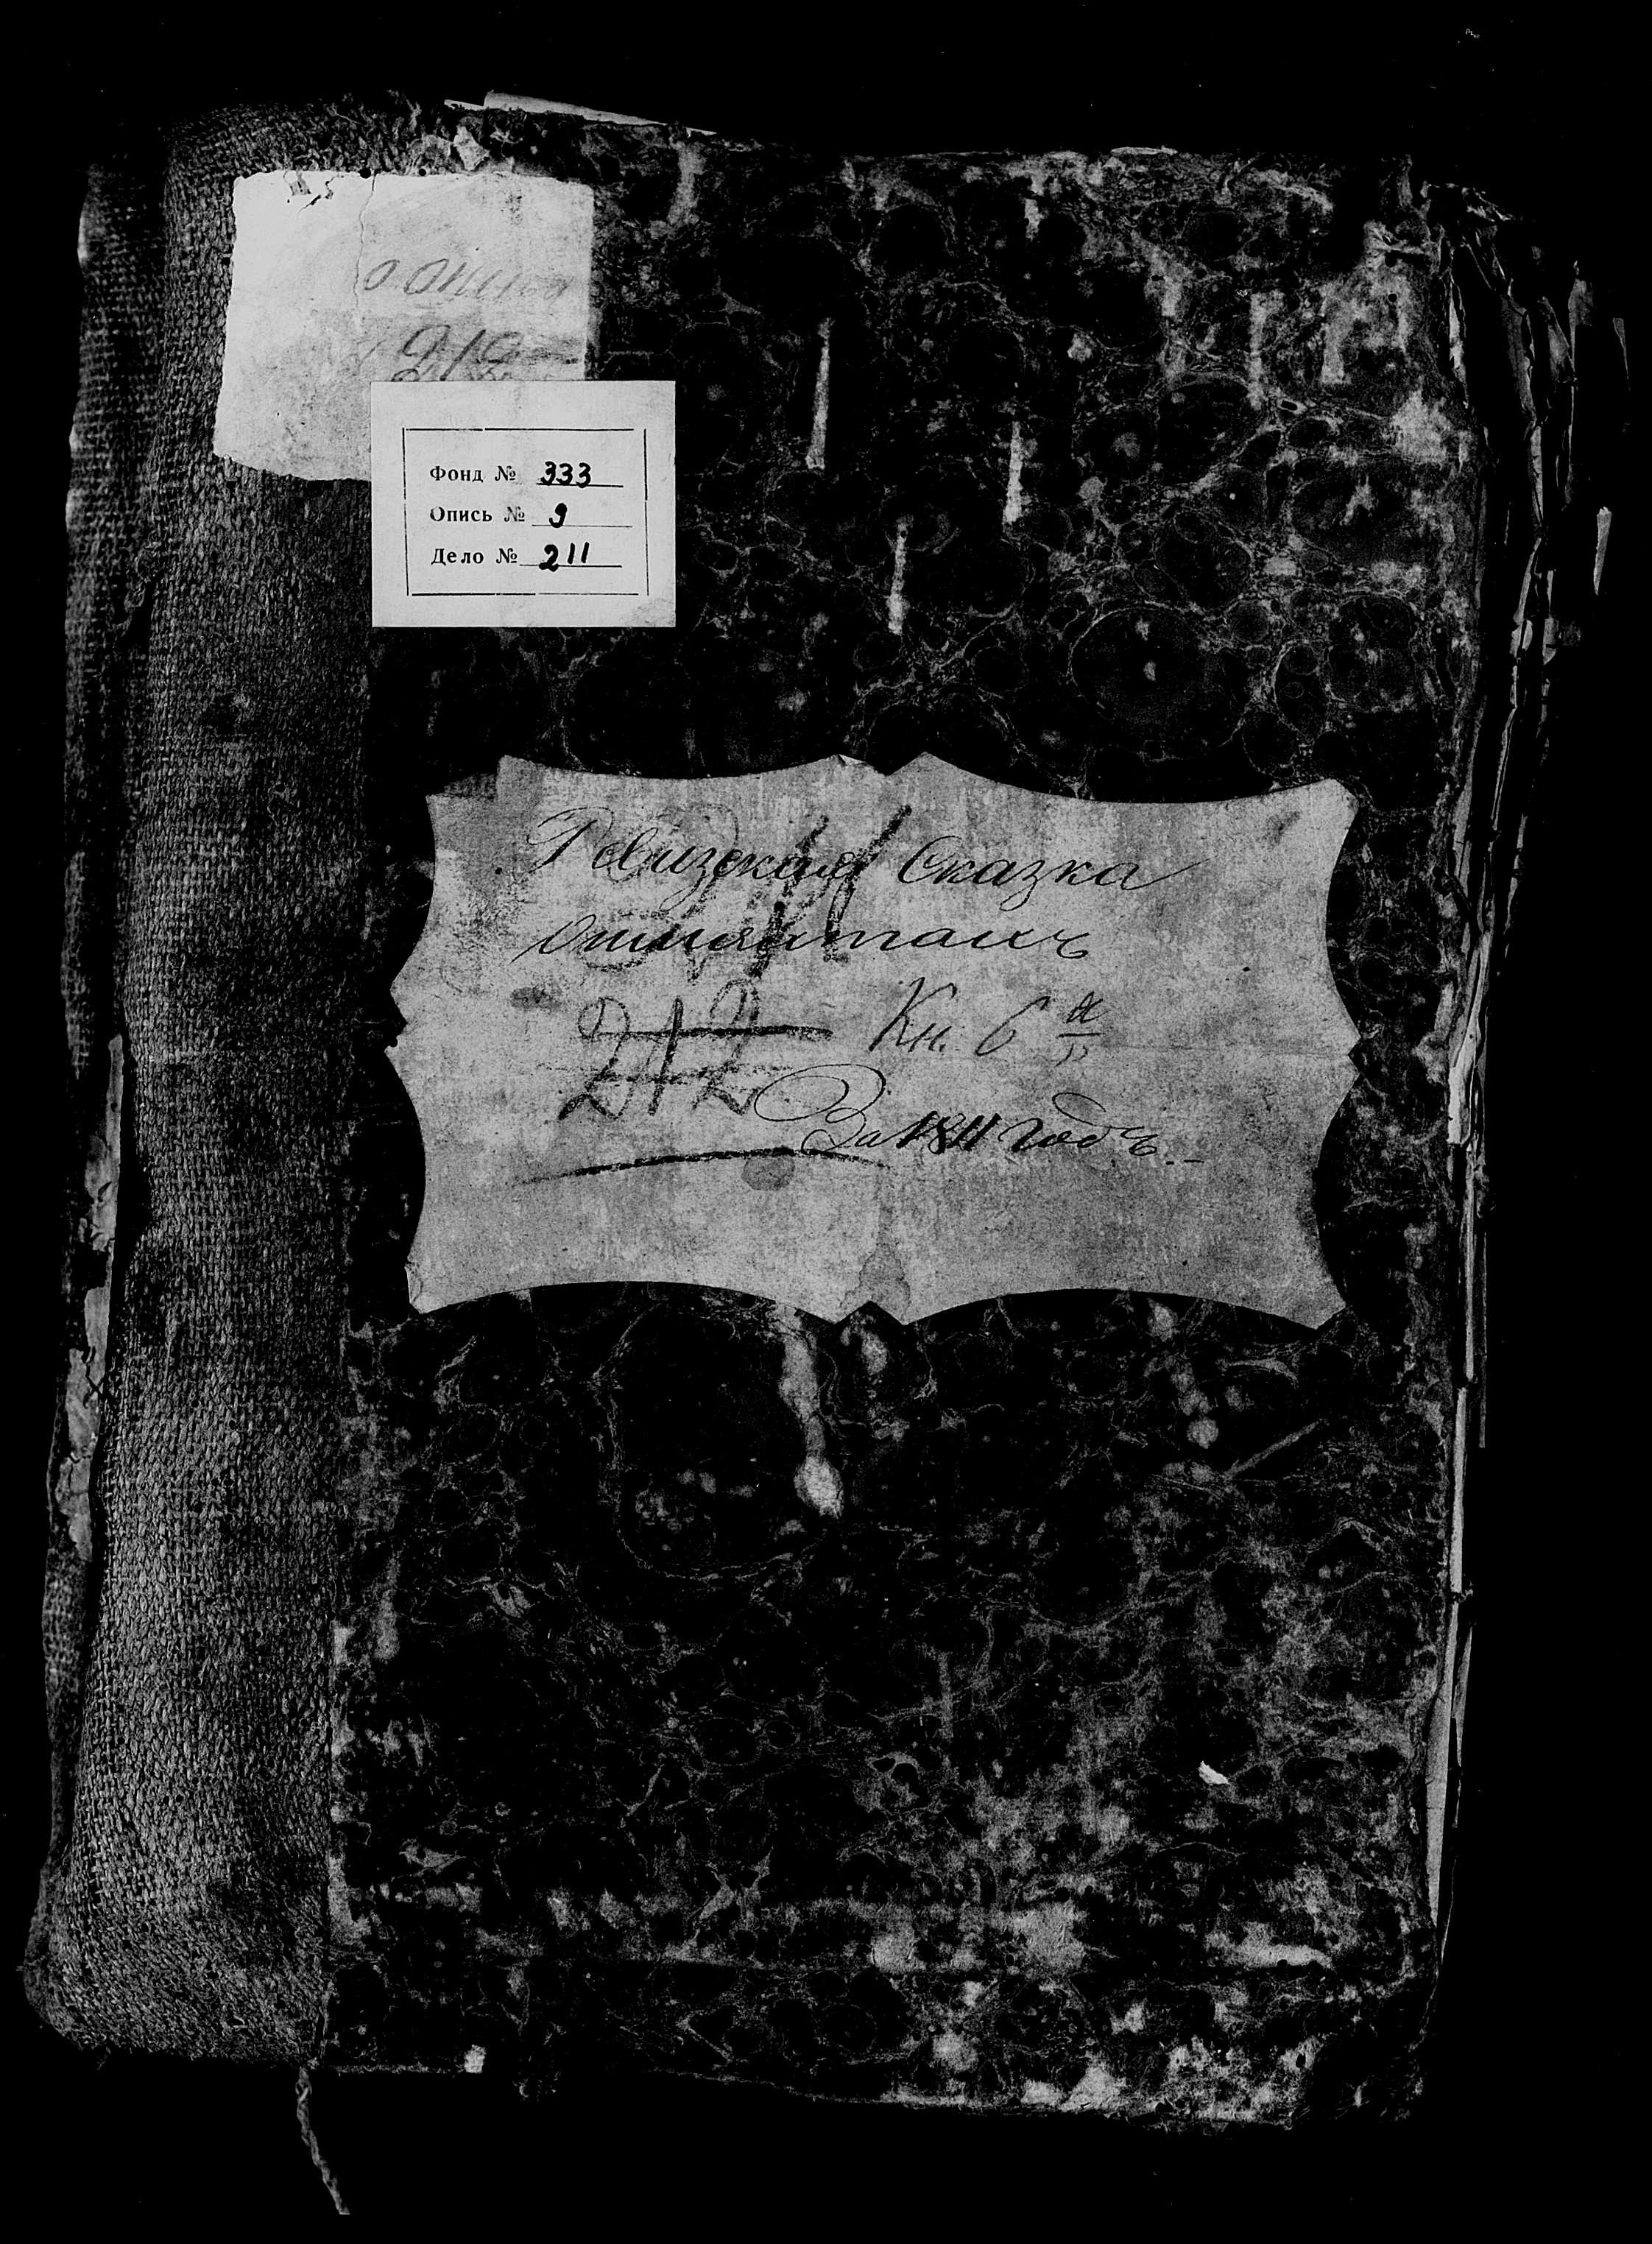 212
Фонд № 333
Опись № 9
Дело № 211
Ревизская Сказка
212
Кн. 6 я
212
За 1811 годъ.